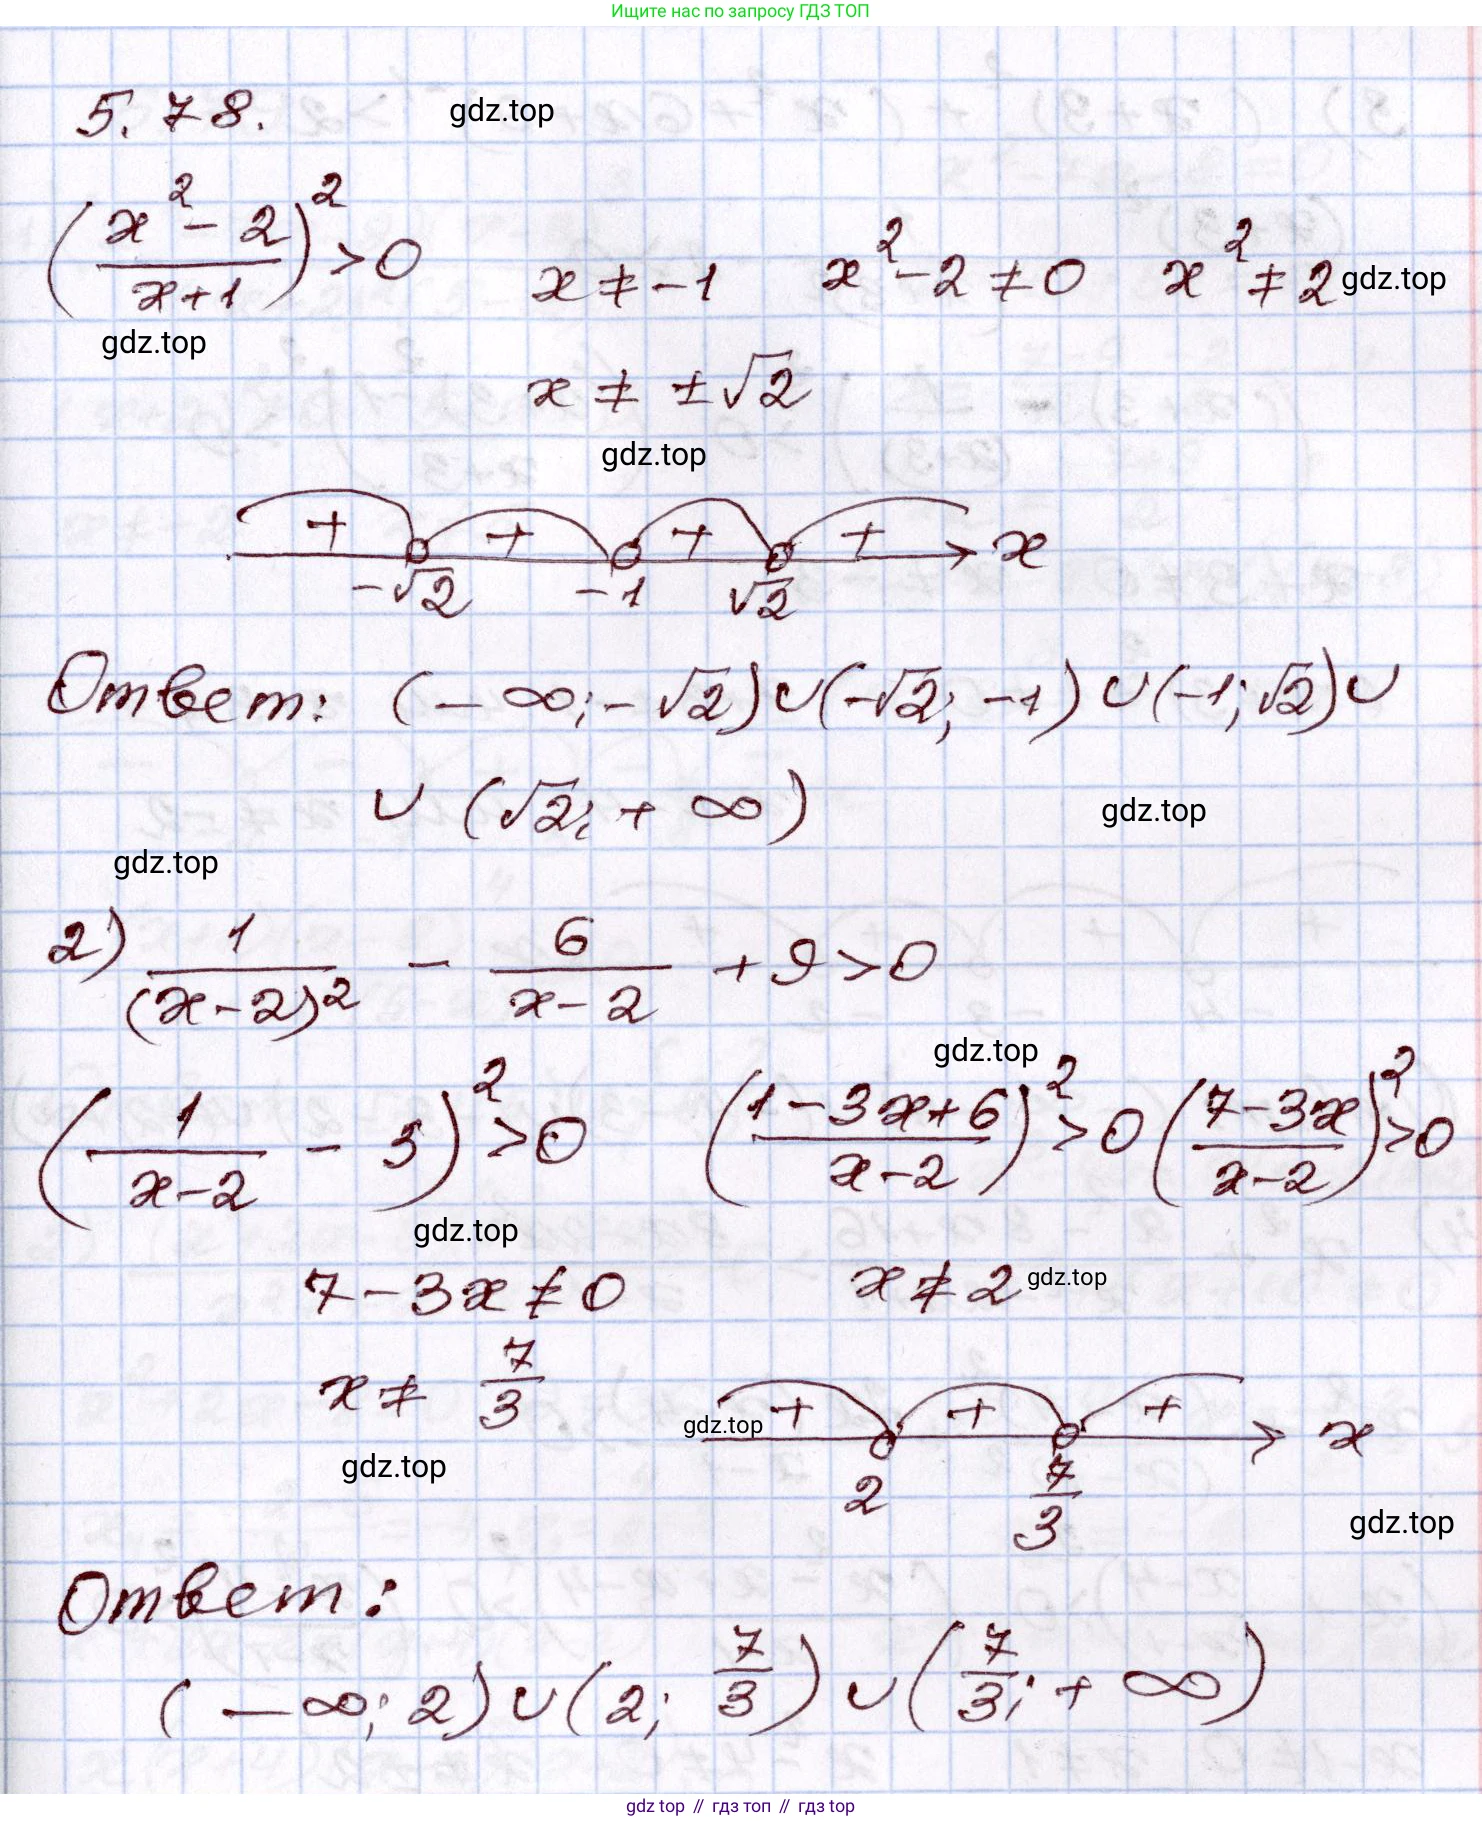 Ищите нас по запросу ГДЗ ТОП
5.78. gdz.top
((x² - 2)/(x+1))² > 0 x ≠ -1 x² - 2 ≠ 0 x² ≠ 2 gdz.top
gdz.top
x ≠ ±√2
gdz.top
+ + + + x
-√2 -1 √2
Ответ: (-∞; -√2) ∪ (-√2; -1) ∪ (-1; √2) ∪
∪ (√2; +∞) gdz.top
gdz.top
2) 1/(x-2)² - 6/(x-2) + 9 > 0
gdz.top
(1/(x-2) - 3)² > 0 ((1-3x+6)/(x-2))² > 0 ((7-3x)/(x-2))² > 0
gdz.top
7 - 3x ≠ 0 x ≠ 2 gdz.top
x ≠ 7/3 gdz.top + + + x
gdz.top
2 7/3
gdz.top
Ответ:
(-∞; 2) ∪ (2; 7/3) ∪ (7/3; +∞)
gdz top // гдз топ // gdz.top